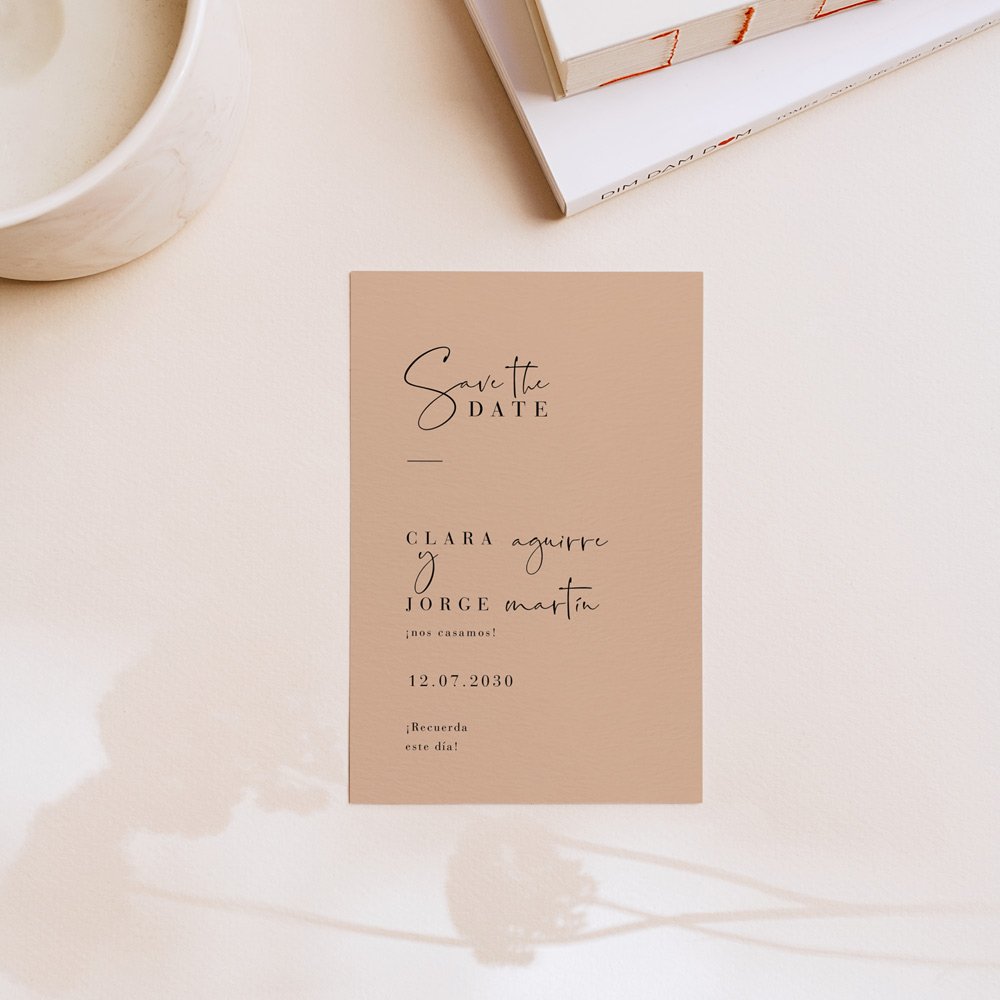 DIM DAM DOM
Save the
DATE
CLARA aguirre
y
JORGE martín
¡nos casamos!
12.07.2030
¡Recuerda
este día!